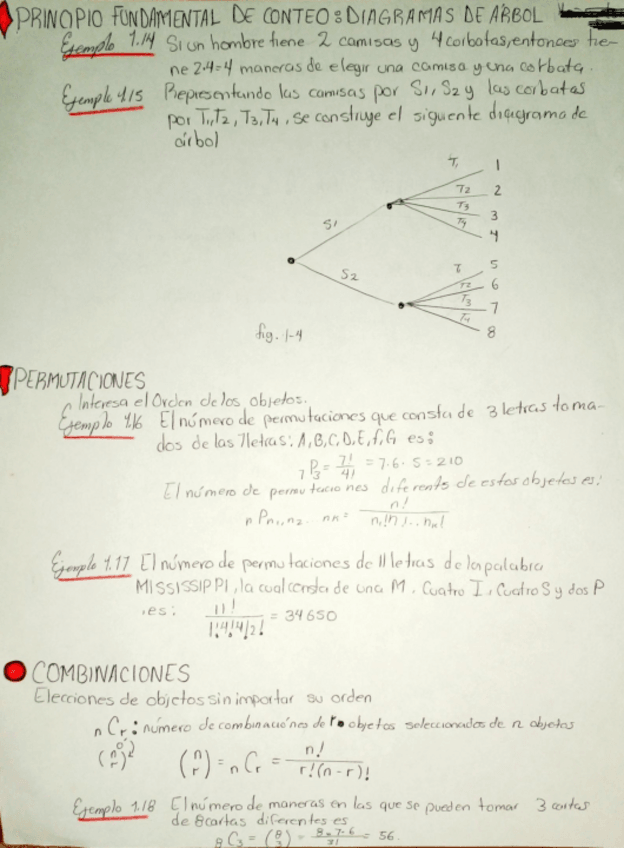 PRINCIPIO FUNDAMENTAL DE CONTEO: DIAGRAMAS DE ARBOL
Ejemplo 1.14 Si un hombre tiene 2 camisas y 4 corbatas, entonces tie-
ne 2·4=4 maneras de elegir una camisa y una corbata.
Ejemplo 1.15 Representando las camisas por S1, S2 y las corbatas
por T1, T2, T3, T4, se construye el siguente diagrama de
árbol
T1 1
T2 2
T3 3
T4 4
S1
S2
T 5
T2 6
T3 7
T4 8
fig. 1-4
PERMUTACIONES
Interesa el Orden de los objetos.
Ejemplo 1.16 El número de permutaciones que consta de 3 letras toma-
dos de las 7 letras: A, B, C, D, E, F, G es:
7P3 = 7!/4! = 7·6·5 = 210
El número de permutaciones diferents de estos objetos es:
nPn1,n2. nn = n!/n1!n2!...nn!
Ejemplo 1.17 El número de permutaciones de 11 letras de la palabra
MISSISSIPPI, la cual consta de una M, Cuatro I, Cuatro S y dos P
, es: 11!/1!4!4!2! = 34650
COMBINACIONES
Elecciones de objetos sin importar su orden
nCr: número de combinaciónes de r objetos seleccionados de n objetos
(n r) (n r) = nCr = n!/r!(n-r)!
Ejemplo 1.18 El número de maneras en las que se pueden tomar 3 cartas
de 8 cartas diferentes es
8C3 = (8 3) = 8·7·6/3! = 56.